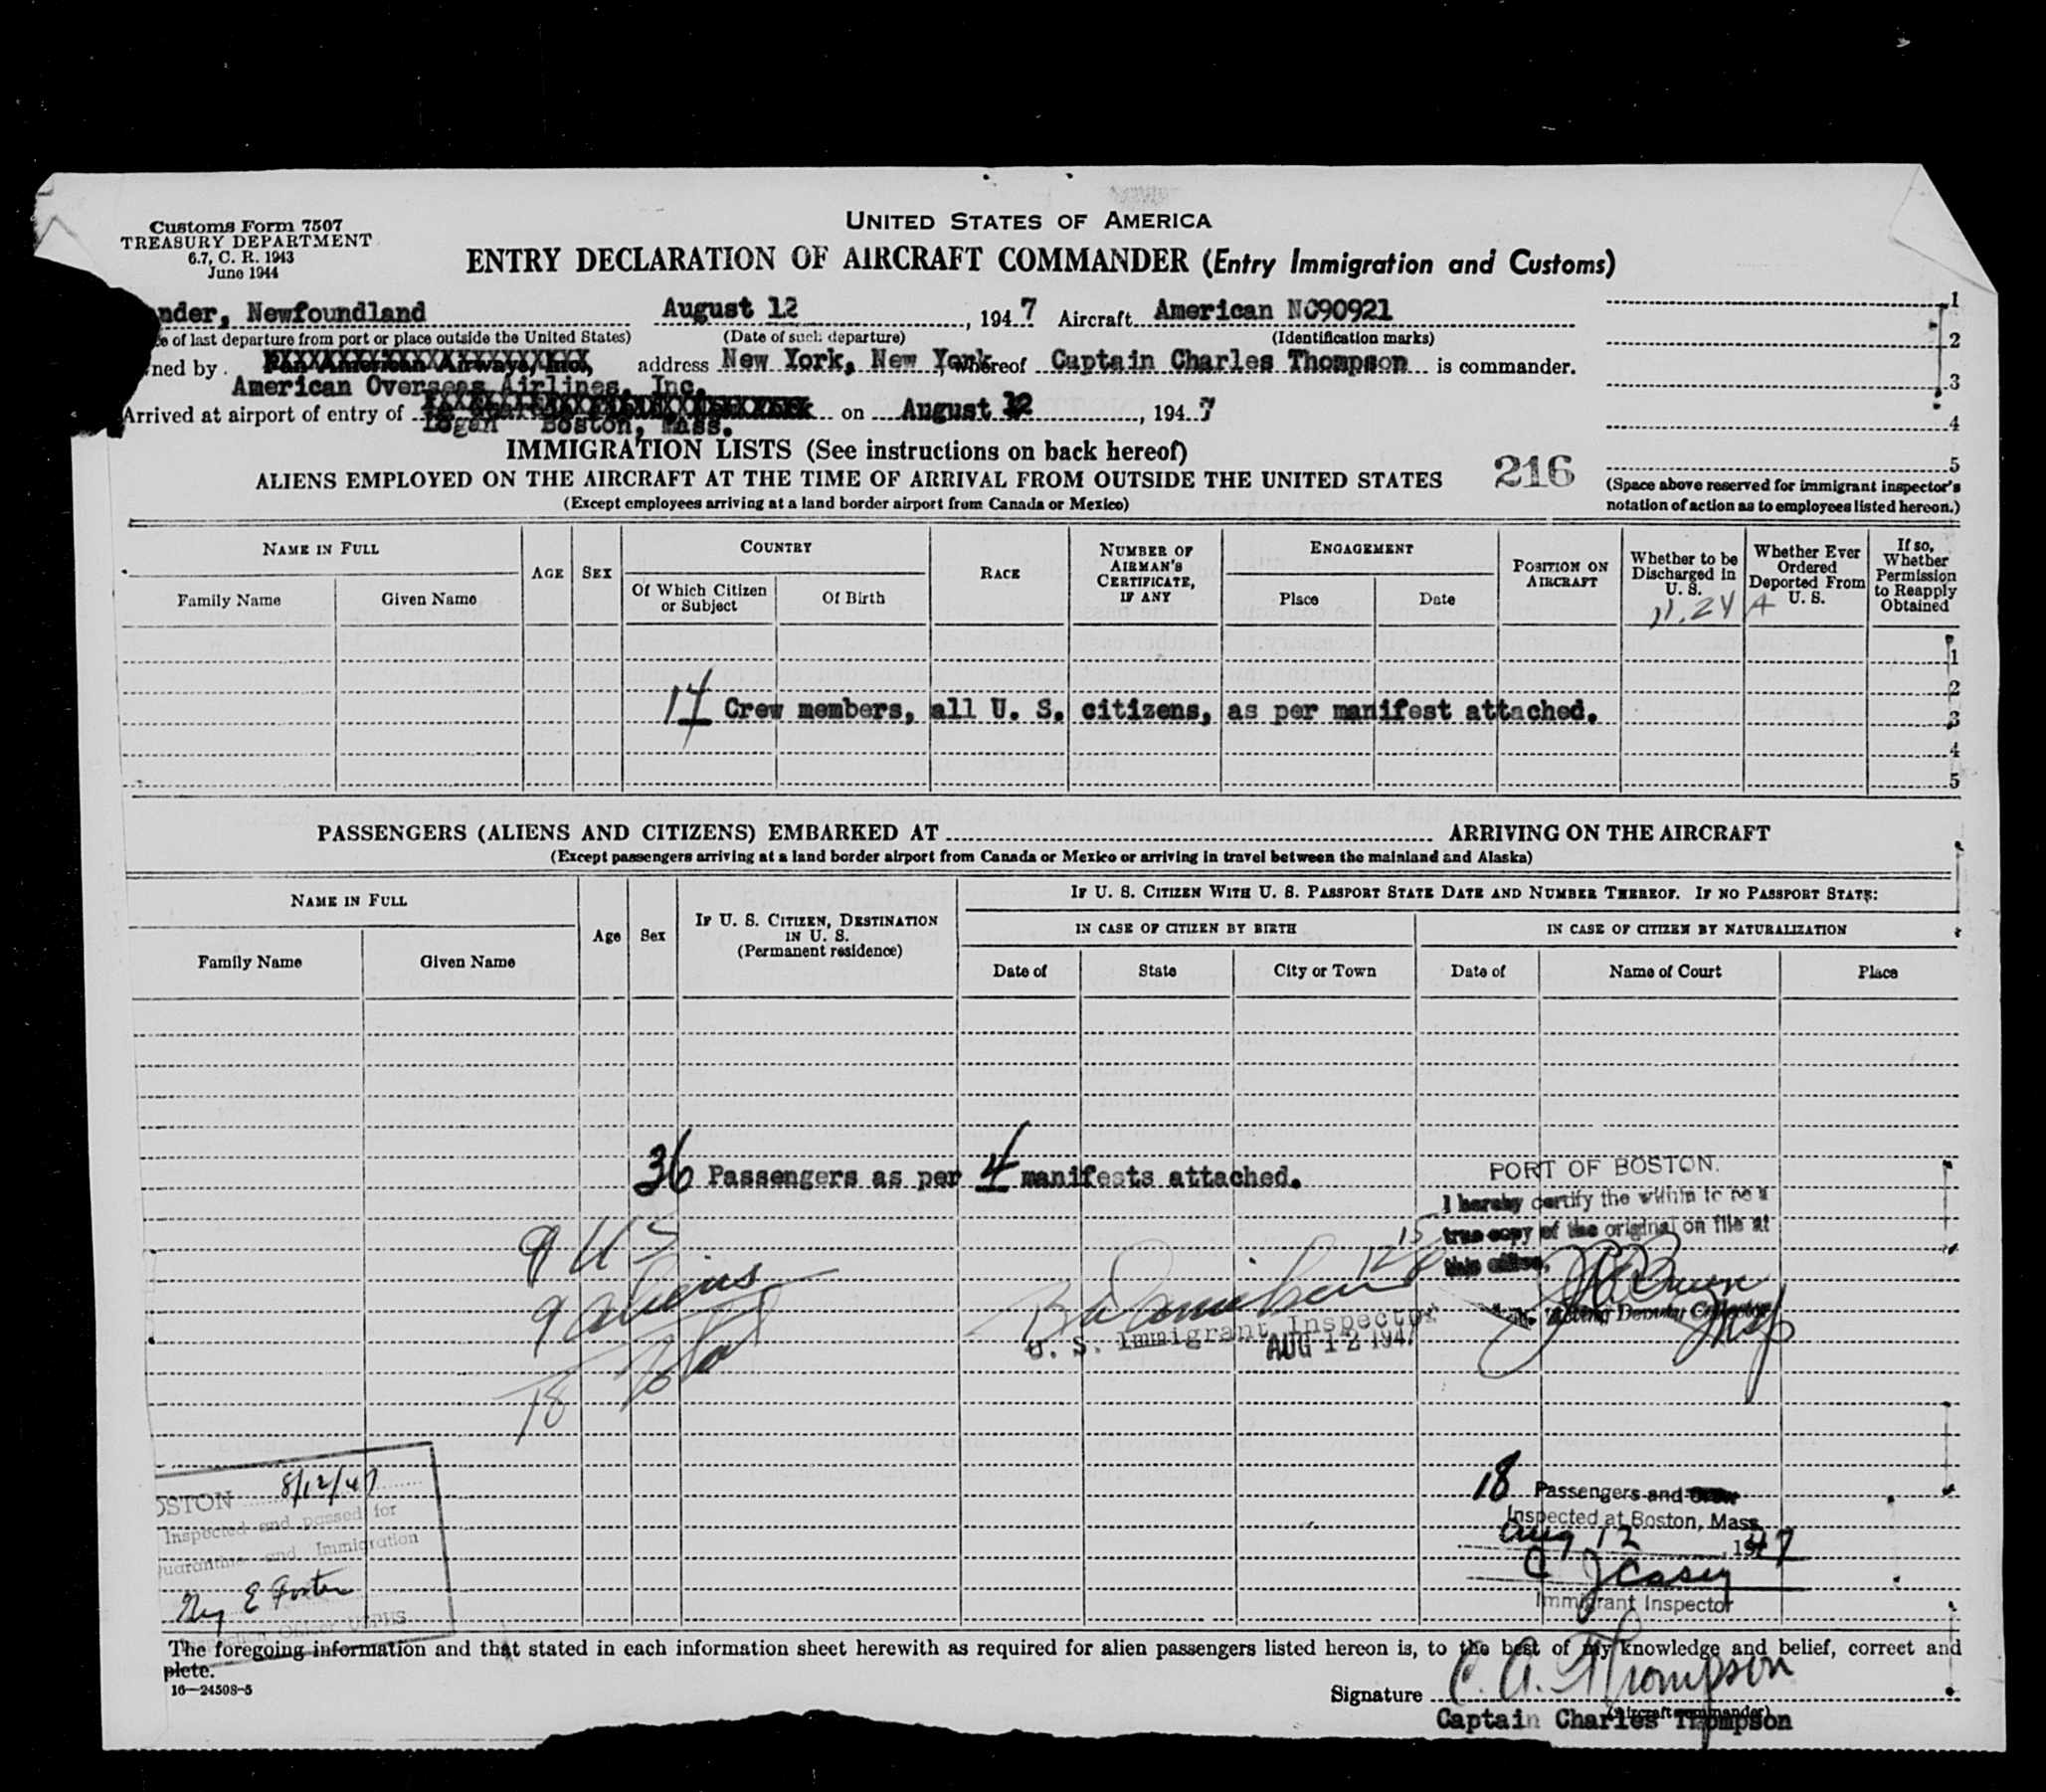 Customs Form 7507
TREASURY DEPARTMENT
6.7, C. R. 1943
June 1944
UNITED STATES OF AMERICA
ENTRY DECLARATION OF AIRCRAFT COMMANDER (Entry Immigration and Customs)
nder, Newfoundland August 12, 1947 Aircraft American NC90921
e of last departure from port or place outside the United States) (Date of such departure) (Identification marks)
ned by Pan American Airways, Inc., address New York, New York, whereof Captain Charles Thompson is commander.
American Overseas Airlines, Inc.
Arrived at airport of entry of on August 12, 1947
Logan Boston, Mass.
1
2
3
4
5
(Space above reserved for immigrant inspector's
notation of action as to employees listed hereon.)
IMMIGRATION LISTS (See instructions on back hereof)
ALIENS EMPLOYED ON THE AIRCRAFT AT THE TIME OF ARRIVAL FROM OUTSIDE THE UNITED STATES 216
(Except employees arriving at a land border airport from Canada or Mexico)
NAME IN FULL
Family Name Given Name
AGE SEX
COUNTRY
Of Which Citizen or Subject
Of Birth
RACE
NUMBER OF AIRMAN'S CERTIFICATE, IF ANY
ENGAGEMENT
Place Date
POSITION ON AIRCRAFT
Whether to be Discharged in U. S.
Whether Ever Ordered Deported From U. S.
If so, Whether Permission to Reapply Obtained
1
2
14 Crew members, all U. S. citizens, as per manifest attached. 3
4
5
PASSENGERS (ALIENS AND CITIZENS) EMBARKED AT ARRIVING ON THE AIRCRAFT
(Except passengers arriving at a land border airport from Canada or Mexico or arriving in travel between the mainland and Alaska)
NAME IN FULL
Family Name Given Name
Age Sex
IF U. S. CITIZEN, DESTINATION IN U. S.
(Permanent residence)
IF U. S. CITIZEN WITH U. S. PASSPORT STATE DATE AND NUMBER THEREOF. IF NO PASSPORT STATE:
IN CASE OF CITIZEN BY BIRTH IN CASE OF CITIZEN BY NATURALIZATION
Date of State City or Town Date of Name of Court Place
36 Passengers as per 4 manifests attached.
PORT OF BOSTON.
I hereby certify the within to be a
true copy of the original on file at
this office.
Acting Deputy Collector
9 US
9 aliens
18
U. S. Immigrant Inspector
AUG 12 1947
OSTON 8/12/47
Inspected and passed for
uarantine and Immigration
E Foster
18 Passengers and Crew
Inspected at Boston, Mass.
Aug 12, 1947
C J Casey
Immigrant Inspector
The foregoing information and that stated in each information sheet herewith as required for alien passengers listed hereon is, to the best of my knowledge and belief, correct and
plete.
16—24508-5
Signature C. A. Thompson
(Aircraft commander)
Captain Charles Thompson